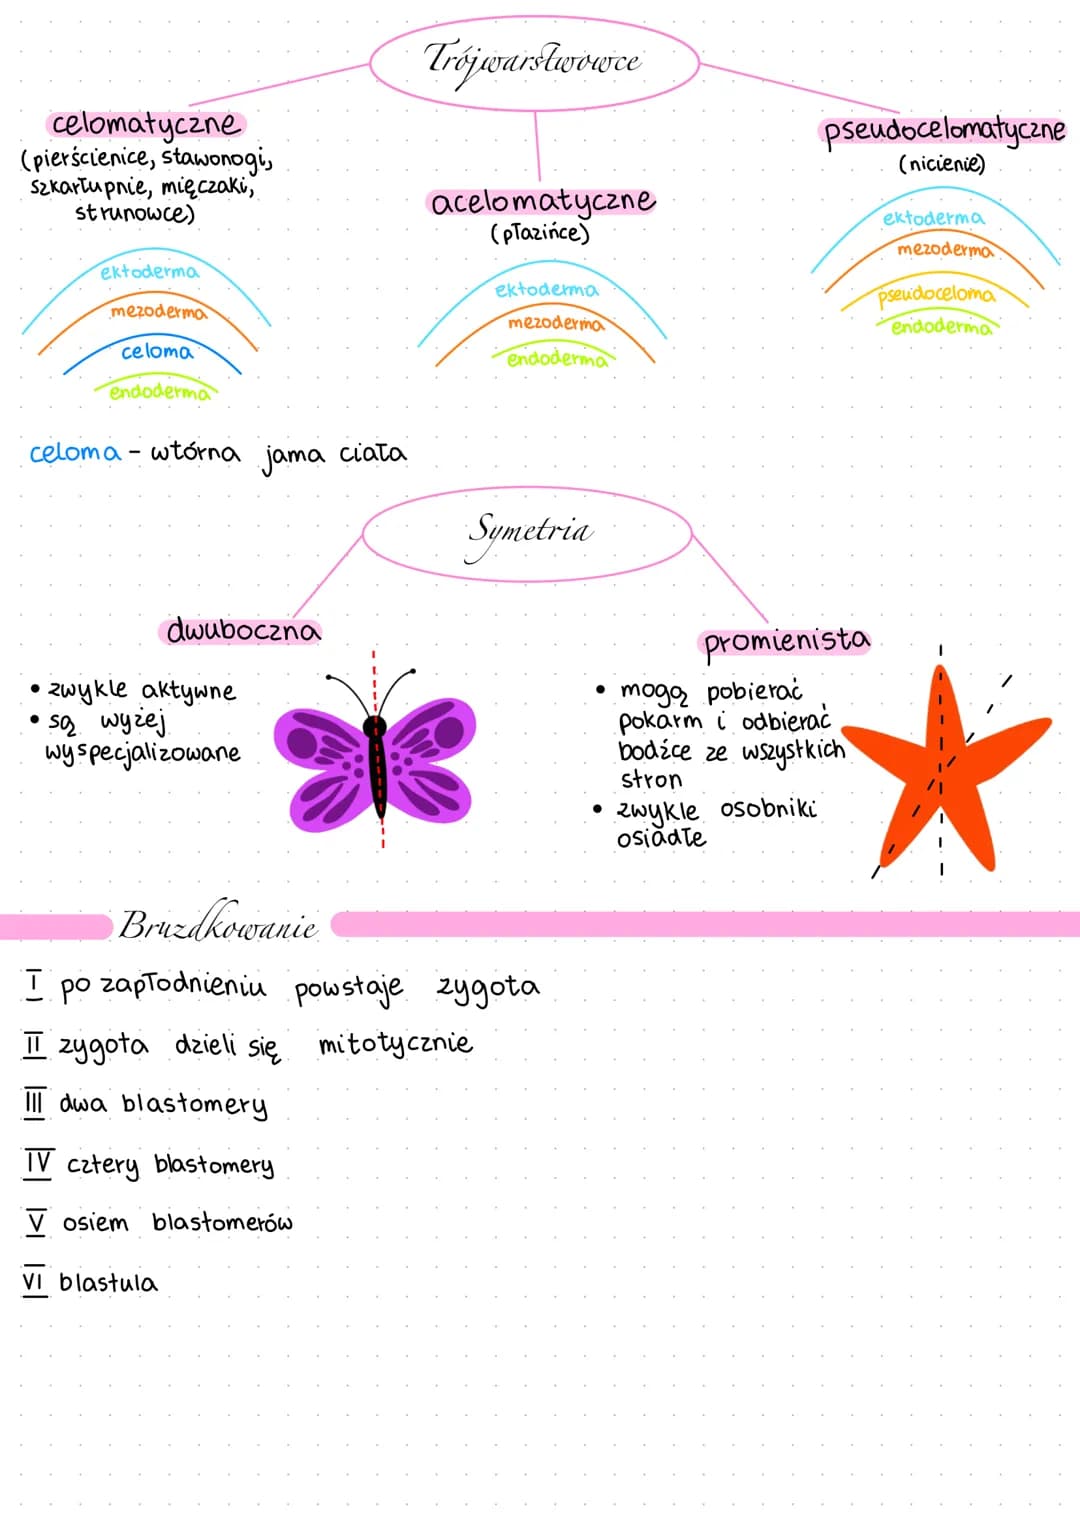 Trójwarstwowce
celomatyczne
(pierścienice, stawonogi,
szkarłupnie, mięczaki,
strunowce)
ektoderma
mezoderma
celoma
endoderma
acelomatyczne
(płazińce)
ektoderma
mezoderma
endoderma
pseudocelomatyczne
(nicienie)
ektoderma
mezoderma
pseudoceloma
endoderma
celoma - wtórna jama ciała
Symetria
dwuboczna
• zwykle aktywne
• są wyżej
wyspecjalizowane
promienista
• mogą pobierać
pokarm i odbierać
bodźce ze wszystkich
stron
• zwykle osobniki
osiadłe
Bruzdkowanie
I po zapłodnieniu powstaje zygota
II zygota dzieli się mitotycznie
III dwa blastomery
IV cztery blastomery
V osiem blastomerów
VI blastula